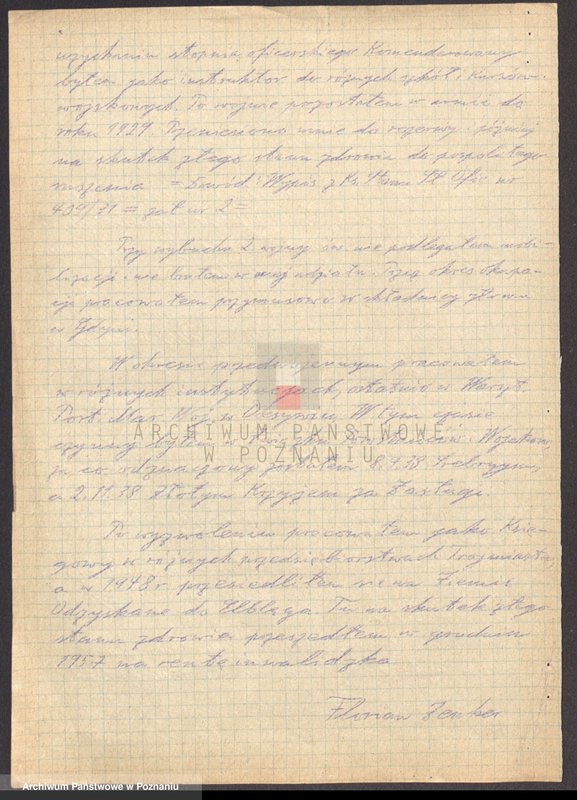 uzyskaniu stopnia oficerskiego. Komenderowany
byłem jako instruktor do różnych szkół i kursów
wojskowych. Po wojnie pozostałem w armii do
roku 1929. Przeniesiono mnie do rezerwy. później
na skutek złego stanu zdrowia do pospolitego
ruszenia = Dowód: Wypis z Ks. Stanu Sł. Ofic. nr
409/71 = zał nr 2 =
Przy wybuchu 2 wojny św. nie podlegałem mobi-
lizacji i nie brałem w niej udziału. Przez okres okupa-
cji pracowałem przymusowo w składnicy złomu
w Gdyni.
W okresie przedwojennym pracowałem
w różnych instytucjach, ostatnio w Warszt.
Port. Mar. Woj. w Oksywiu. W tym czasie
czynny byłem w Związku
za co odznaczony zostałem 8.4.38 Srebrnym,
a 2.11.38 Złotym Krzyżem za Zasługi.
Po wyzwoleniu pracowałem jako Księ-
gowy w różnych przedsiębiorstwach Trójmiasta,
a w 1948 r przesiedliłem się na Ziemie
Odzyskane do Elbląga. Tu na skutek złego
stanu zdrowia przeszedłem w grudniu
1957 na rentę inwalidzką
Florian Zenker
ARCHIWUM PAŃSTWOWE
W POZNANIU
Archiwum Państwowe w Poznaniu